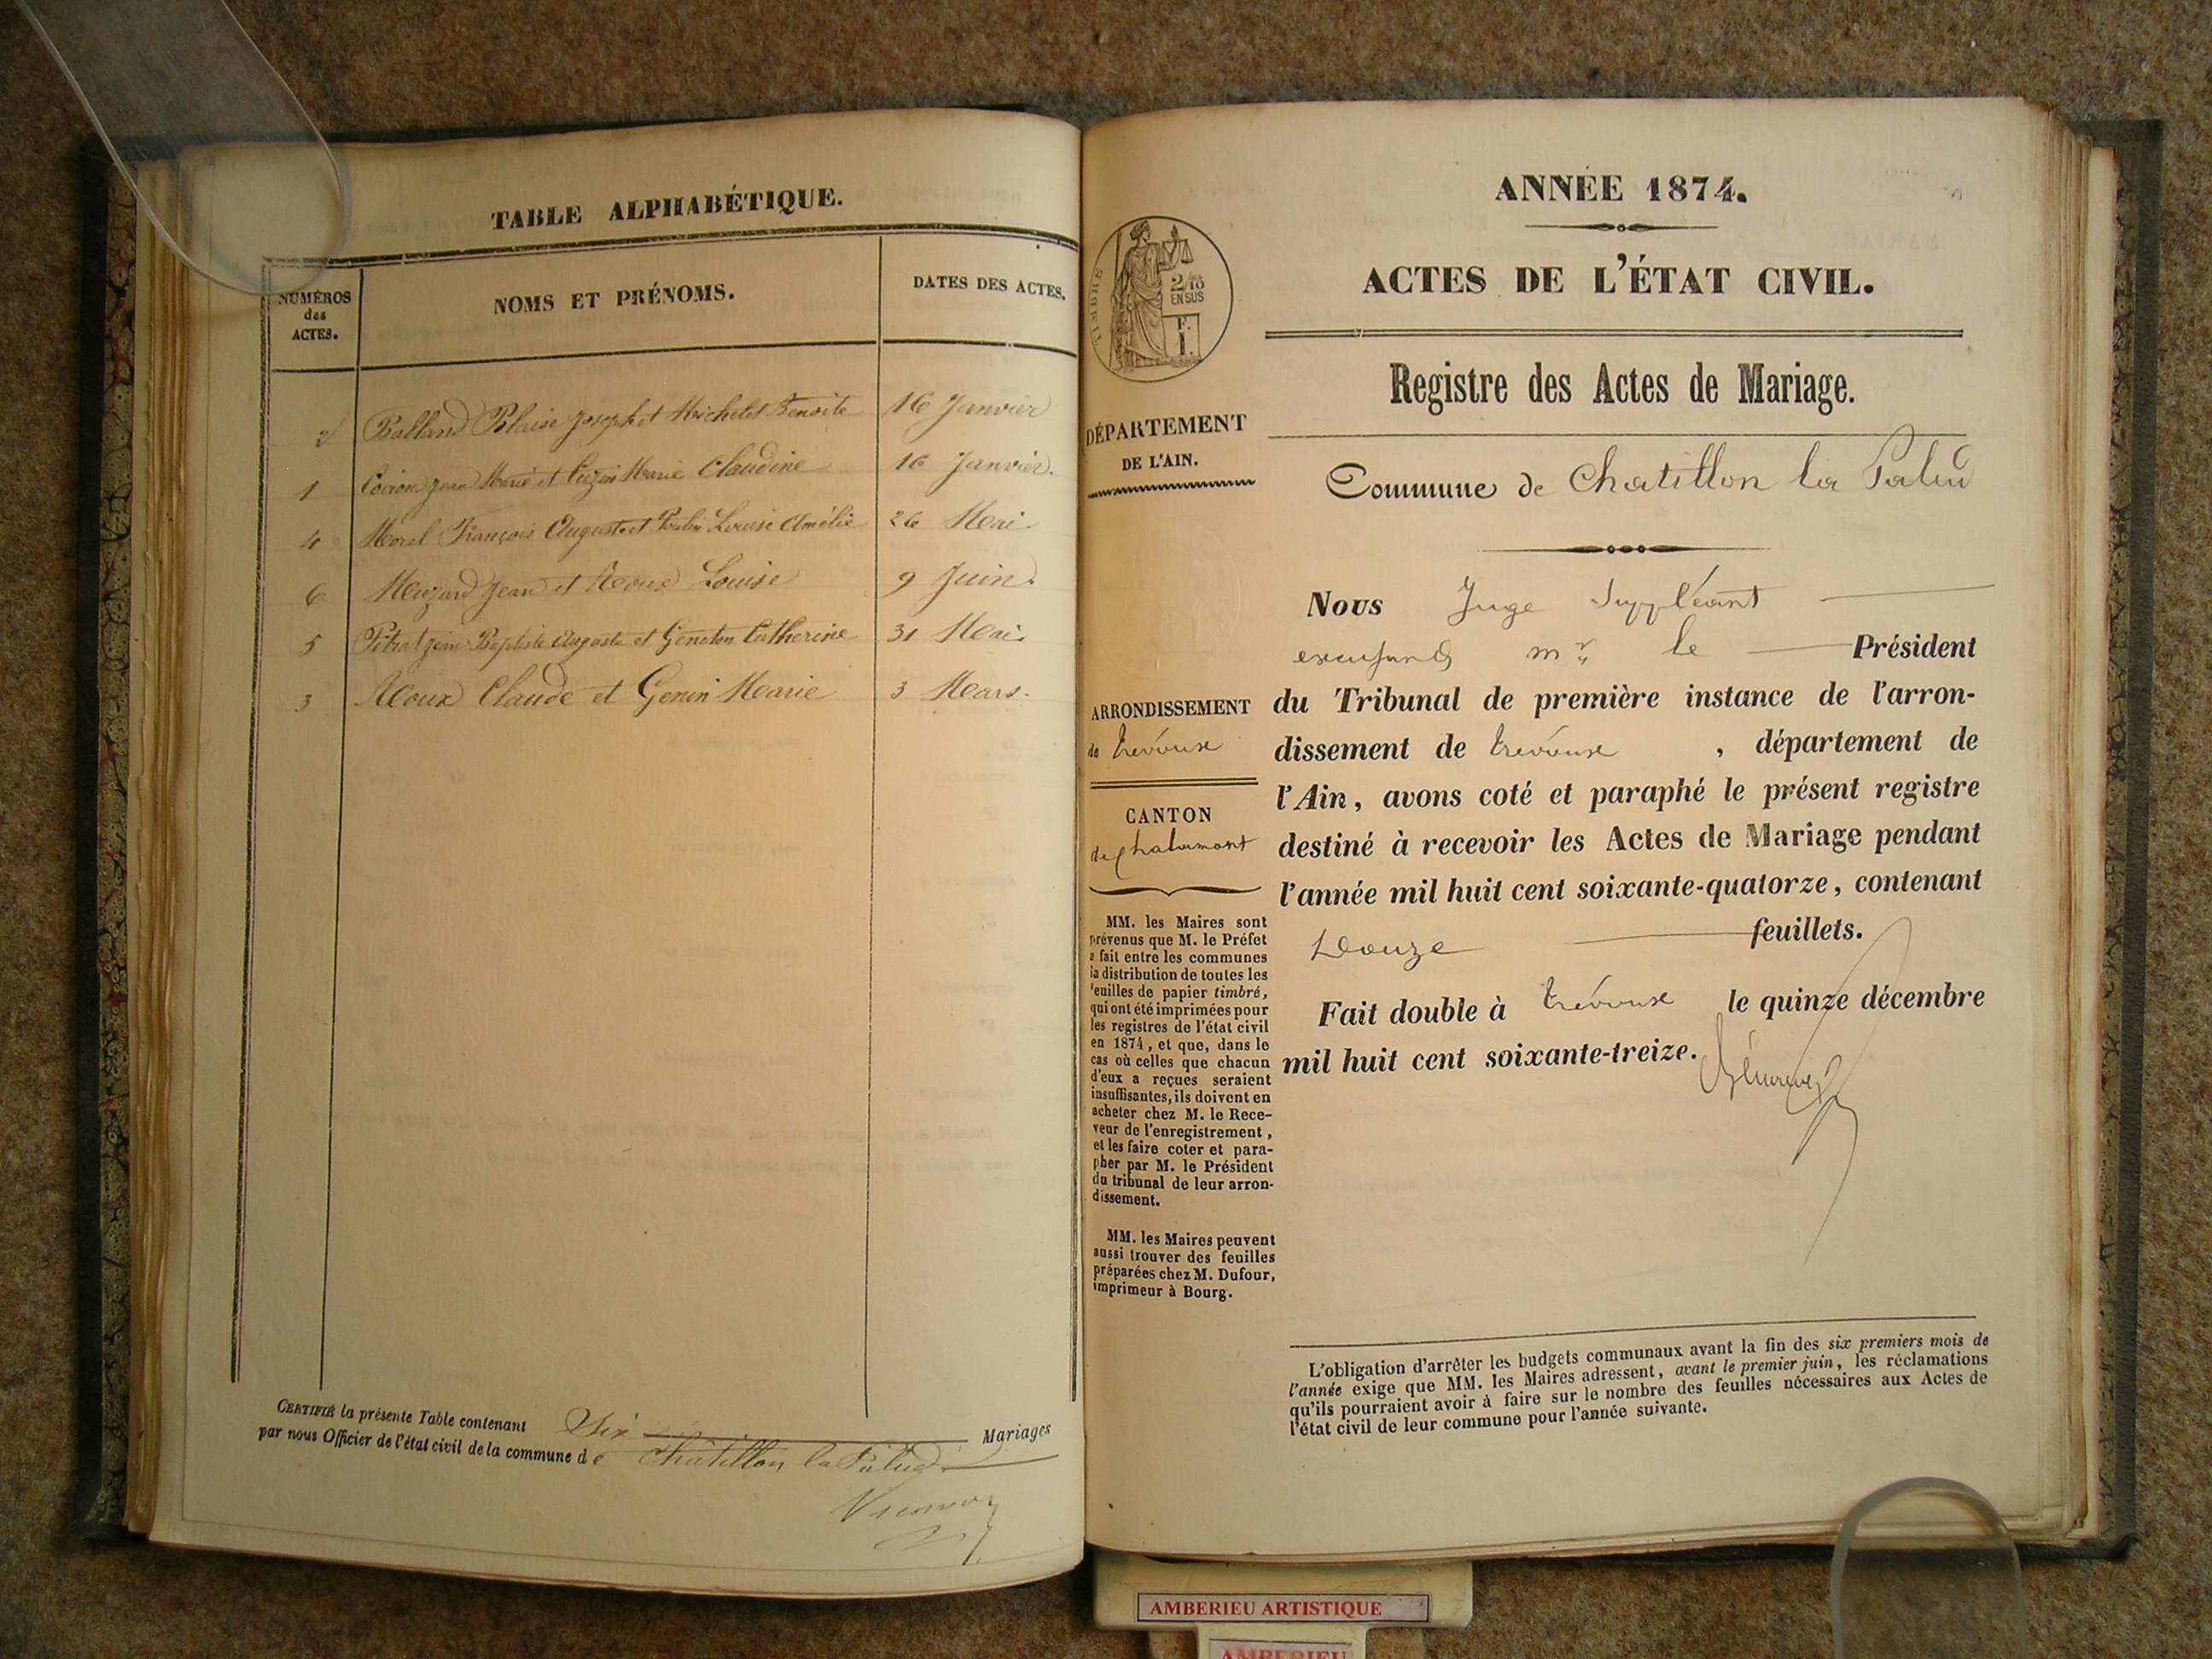 TABLE ALPHABÉTIQUE.
NUMÉROS
des
ACTES.
NOMS ET PRÉNOMS.
DATES DES ACTES.
2 Balland Blaise Joseph et Michelet Benoite 16 Janvier
1 Jean Marie et Marie Claudine 16 Janvier.
4 Morel François Auguste et Louise Amélie 26 Mai
6 Jean et Roux Louise 9 Juin.
5 Jean Baptiste Auguste et Catherine 31 Mai.
3 Roux Claude et Genin Marie 3 Mars.
CERTIFIÉ la présente Table contenant Six Mariages
par nous Officier de l'état civil de la commune de Châtillon la Palud
TIMBRE
2/10
EN SUS
F.
1.
DÉPARTEMENT
DE L'AIN.
ARRONDISSEMENT
de trévoux
CANTON
de Chalamont
MM. les Maires sont
prévenus que M. le Préfet
a fait entre les communes
la distribution de toutes les
feuilles de papier timbré,
qui ont été imprimées pour
les registres de l'état civil
en 1874, et que, dans le
cas où celles que chacun
d'eux a reçues seraient
insuffisantes, ils doivent en
acheter chez M. le Rece-
veur de l'enregistrement,
et les faire coter et para-
pher par M. le Président
du tribunal de leur arron-
dissement.
MM. les Maires peuvent
aussi trouver des feuilles
préparées chez M. Dufour,
imprimeur à Bourg.
ANNÉE 1874.
ACTES DE L'ÉTAT CIVIL.
Registre des Actes de Mariage.
Commune de Chatillon la Palud
Nous Juge Suppléant
mr le Président
du Tribunal de première instance de l'arron-
dissement de trévoux, département de
l'Ain, avons coté et paraphé le présent registre
destiné à recevoir les Actes de Mariage pendant
l'année mil huit cent soixante-quatorze, contenant
Douze feuillets.
Fait double à trévoux le quinze décembre
mil huit cent soixante-treize.
L'obligation d'arrêter les budgets communaux avant la fin des six premiers mois de
l'année exige que MM. les Maires adressent, avant le premier juin, les réclamations
qu'ils pourraient avoir à faire sur le nombre des feuilles nécessaires aux Actes de
l'état civil de leur commune pour l'année suivante.
AMBERIEU ARTISTIQUE
AMBERIEU